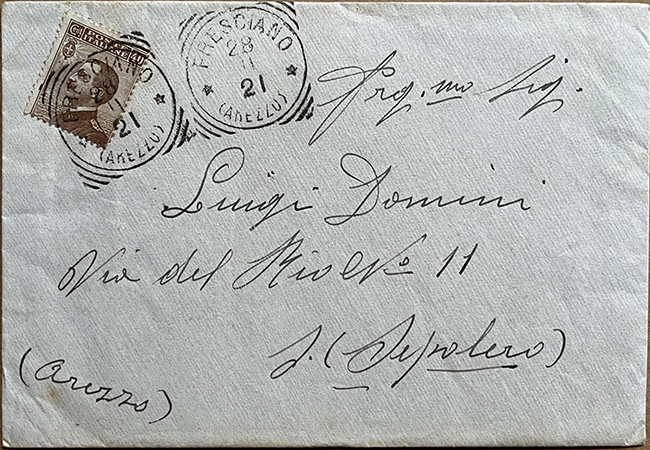 POSTE ITALIANE
FRESCIANO
28
11
21
(AREZZO)
FRESCIANO
28
11
21
(AREZZO)
Preg.mo Sig.
Luigi Domini
Via del Rio No 11
S. (Sepolcro)
(Arezzo)